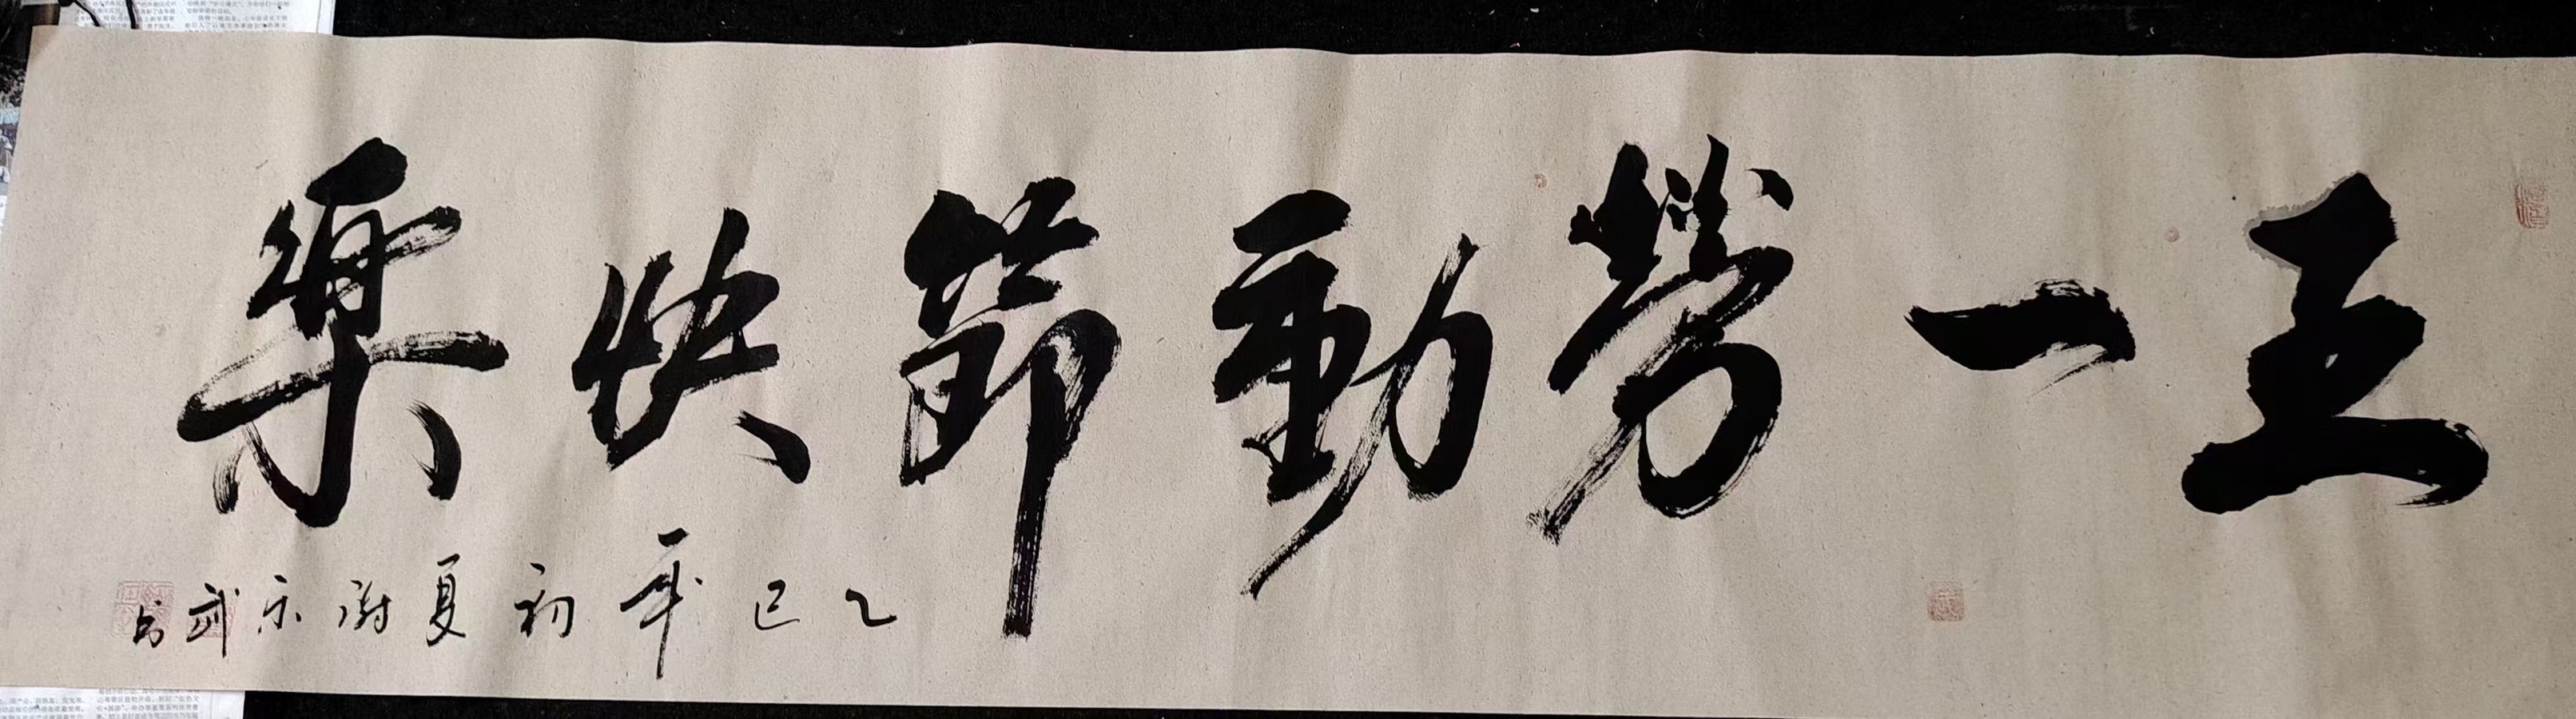 五一勞動節快樂
乙巳年初夏謝宗武书